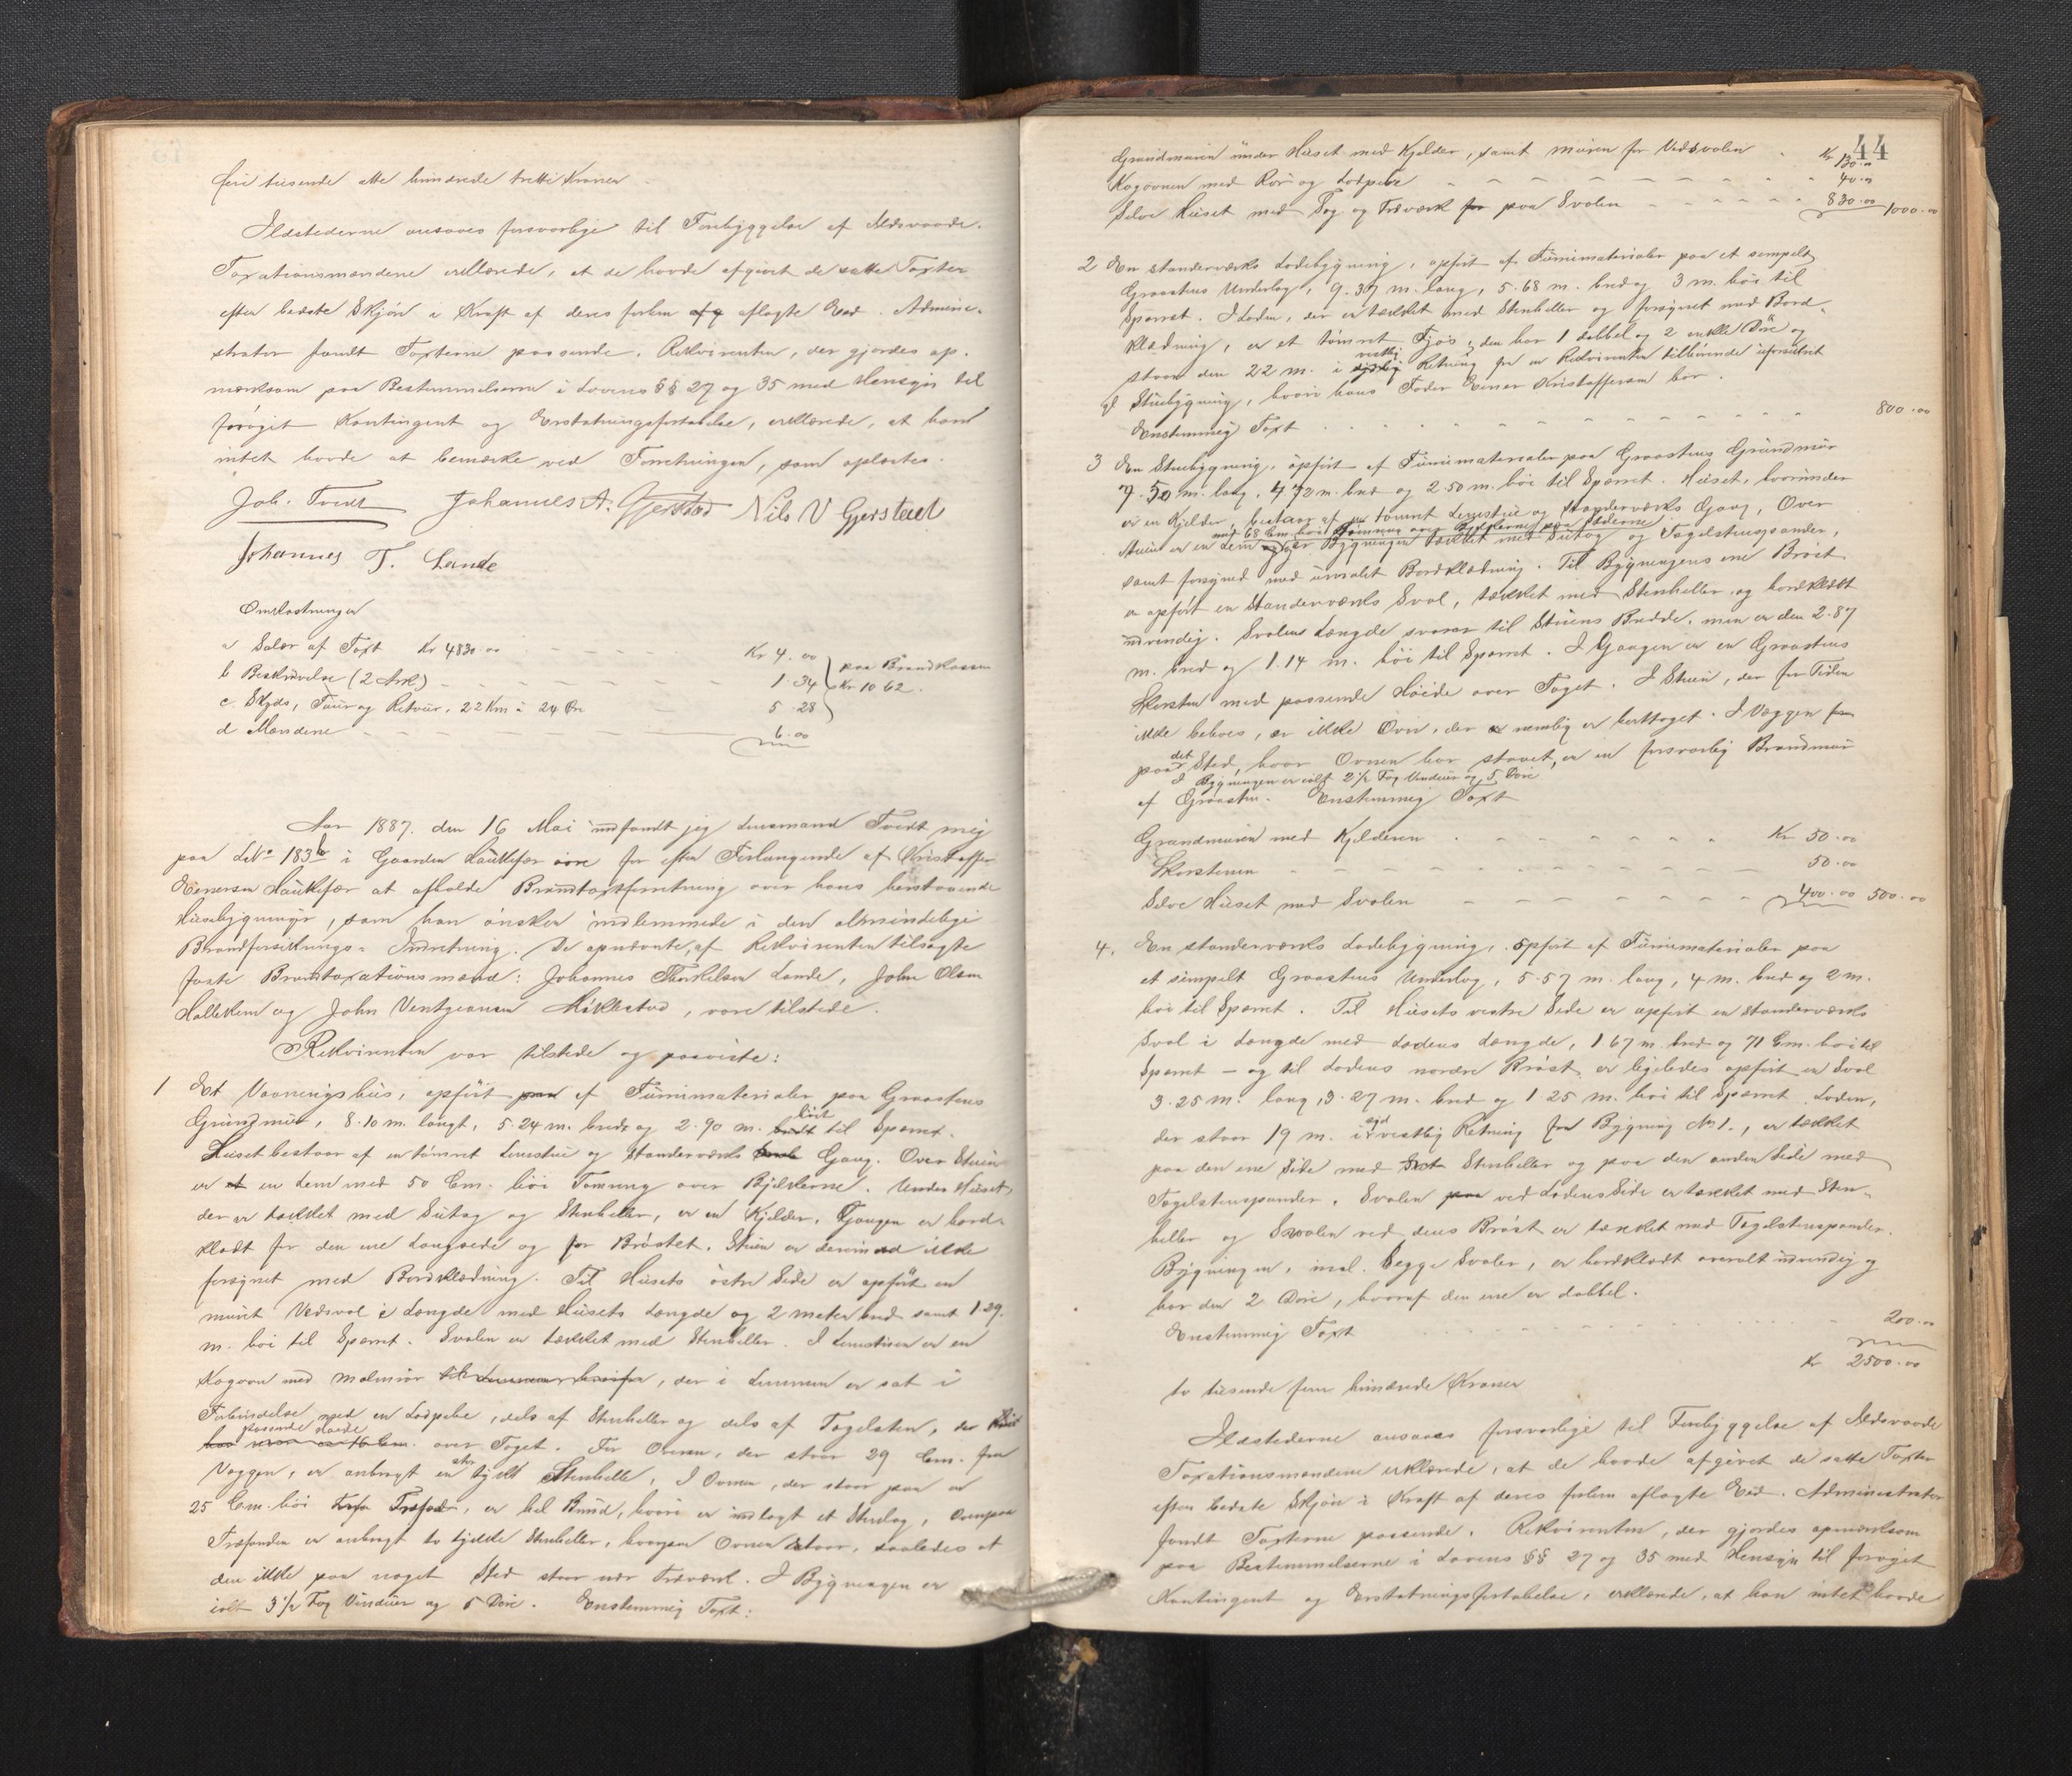 fire tusende otte hundrede tretti Kroner
Ildstederne ansaaes forsvarlige til Forebyggelse af Ildsvaade.
Taxationsmændene erklærede, at de havde afgivet de satte Taxter
efter bedste Skjøn i Kraft af deres forhen afg aflagte Eed. Admini-
strator fandt Taxterne passende. Rekvirenten, der gjordes op-
mærksom paa Bestemmelserne i Lovens §§ 27 og 35 med Hensyn til
forøget Kontingent og Erstatningsfortabelse, erklærede, at han
intet havde at bemærke ved Forretningen, som oplæstes.
Joh. Tvedt Johannes A. Gjerstad Nils V Gjerstad
Johannes T. Lande
Omkostninger
a Salær af Taxt Kr 4830.00 Kr 4.00
b Beskrivelse (2 Ark) 1.34 paa Brandkassen
c. Skyds, Tuur og Retuur, 22 Km à 24 Øre 5.28 Kr 10 62.
d Mændene 6.00
Aar 1887. den 16 Mai indfandt jeg Lensmand Tvedt mig
paa LNo 183b i Gaarden Haukefær øvre for efter Forlangende af Kristoffer
Einersen Haukefær at afholde Brandtaxtforretning over hans henstaaende
Husebygninger, som han ønsker indlemmede i den almindelige
Brandforsikrings-Indretning. De opnævnte, af Rekvirenten tilsagte
faste Brandtaxationsmænd: Johannes Therkelsen Lande, John Olsen
Hallekem og John Ventgeausen Mikkestad, vare tilstede.
Rekvirenten var tilstede og paaviste:
1 Et Vaaningshus, opført paa af Furumaterialer paa Graastens
Grundmur, 8.10 m. langt, 5.24 m. bredt og 2.90 m. bredt høit til Sparret.
Huset bestaar af en tømret Lemstue og Standerværks Gang. Over Stuen
er et en Lem med 50 Cm. høi Tømring over Bjelkerne. Under Huset,
der er tækket med Sutag og Stenheller, er en Kjelder. Gangen er bord-
klædt for den ene Langside og for Brøstet. Stuen er derimod ikke
forsynet med Bordklædning. Til Husets østre Side er opført en
muret Vedsval i Længde med Husets Længde og 2 meter bred samt 1.29.
m. høi til Sparret. Svalen er tækket med Stenheller. I Lemstuen er en
Kogovn med Malmrør, der i Lemmen er sat i
Forbindelse med en Lodpibe, dels af Stenheller og dels af Tagelsten, der
passende Høide over Taget. For Ovnen, der staar 29 Cm. fra
Væggen, er anbragt en stor tykk Stenhelle. I Ovnen, der staar paa en
25 Cm. høi Træfod, er hel Bund, hvori er indlagt et Stenlag, Ovenpaa
Træfoden er anbragt to tykke Stenheller, hvorpaa Ovnen staar, saaledes at
den ikke paa noget Sted staar nær Træværk. I Bygningen er
ialt 3 1/2 Fag Vinduer og 5 Døre. Enstemmig Taxt:
44
Grundmuren under Huset med Kjelder, samt muren for Vedsvalen Kr 130.00
Kogovnen med Rør og Lodpibe 40.00
Selve Huset med Tag og Træværk for paa Svalen 830.00 1000.00
2 En standerværks Ladebygning, opført af Furumaterialer paa et simpelt
Graastens Underlag, 9.37 m. lang, 5.68 m. bred og 3 m. høi til
Sparret. I Laden, der er tækket med Stenheller og forsynet med Bord-
klædning, er et tømret Fjøs; den har 1 dobbel og 2 enkle Døre og
staar den 22 m. i vestlig Retning fra en Rekvirenten tilhørende uforsikret
gl Stuebygning, hvori hans Fader Einer Kristoffersen bor.
Enstemmig Taxt 800.00
3 En Stuebygning, opført af Furumaterialer paa Graastens Grundmur
7.50 m. lang, 4 72 m. bred og 2.50 m. høi til Sparret. Huset, hvorunder
er en Kjelder, bestaar af en tømret Lemstue og Standerværks Gang, Over
med 68 Cm. høi Tømring over Bjelkerne paa Siderne
Stuen er en Lem og er Bygningen tækket med Sutag og Tagelstenspander,
samt forsynet med umalet Bordklædning. Til Bygningens ene Brøst
er opført en Standerværks Sval, tækket med Stenheller og bordklædt
udvendig. Svalens Længde svarer til Stuens Bredde, men er den 2.87
m. bred og 1.14 m. høi til Sparret. I Gangen er en Graastens
Skorsten med passende Høide over Taget. I Stuen, der for Tiden
ikke beboes, er ikke Ovn, der nemlig er borttaget. I Væggen
paa det Sted, hvor Ovnen har staaet, er en forsvarlig Brandmur
I Bygningen er ialt 2 1/2 Fag Vinduer og 5 Døre
af Graasten. Enstemmig Taxt
Grundmuren med Kjelderen Kr 50.00
Skorstenen 50.00
Selve Huset med Svalen 400.00 500.00
4. En standerværks Ladebygning, opført af Furumaterialer paa
et simpelt Graastens Underlag, 5.57 m. lang, 4 m. bred og 2 m.
høi til Sparret. Til Husets vestre Side er opført en Standerværks
Sval i Længde med Ladens Længde, 1 67 m. bred og 71 Cm. høi til
Sparret – og til Ladens nordre Brøst er ligeledes opført en Sval
3.25 m. lang, 3.27 m. bred og 1 25 m. høi til Sparret. Laden,
der staar 19 m. i sydvestlig Retning fra Bygning No 1., er tækket
paa den ene Side med Stenheller og paa den anden Side med
Tagelstenspander. Svalen paa ved Ladens Side er tækket med Sten-
heller og Svalen ved dens Brøst er tækket med Tagelstenspander.
Bygningen, incl. begge Svaler, er bordklædt overalt udvendig og
har den 2 Døre, hvoraf den ene er dobbel.
Enstemmig Taxt 200.00
Kr 2500.00
to tusende fem hundrede Kroner
Ildstederne ansaaes forsvarlige til Forebyggelse af Ildsvaade
Taxationsmændene erklærede, at de havde afgivet de satte Taxter
efter bedste Skjøn i Kraft af deres forhen aflagte Eid. Administrator
fandt Taxterne passende. Rekvirenten, der gjordes opmærksom
paa Bestemmelserne i Lovens §§ 27 og 35 med Hensyn til forøget
Kontingent og Erstatningsfortabelse, erklærede, at han intet havde